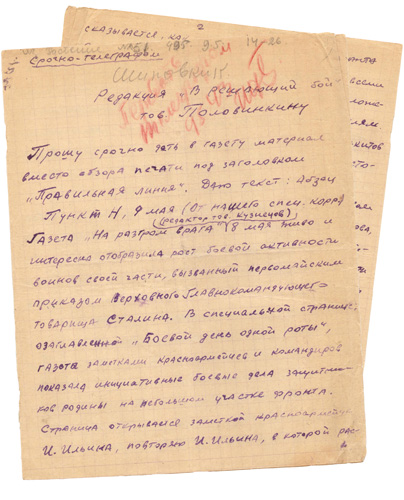 2
сказывается, ка
Срочно-телеграфом
Редакция "В решающий бой"
тов. Половинкину
Прошу срочно дать в газету материал
вместо обзора печати под заголовком
"Правильная линия". Даю текст: Абзац
Пункт Н, 9 мая (От нашего спец. корр)
(редактор тов. Кузнецов)
Газета "На разгром врага" 8 мая живо и
интересно отобразила рост боевой активности
воинов своей части, вызванный первомайским
приказом Верховного Главнокомандующего
товарища Сталина. В специальной странице,
озаглавленной "Боевой день одной роты",
газета заметками красноармейцев и командиров
показала инициативные боевые дела защитни-
ков родины на небольшом участке фронта.
Страница открывается заметкой красноармейца
И. Ильина, повторяю И. Ильина, в которой рас-